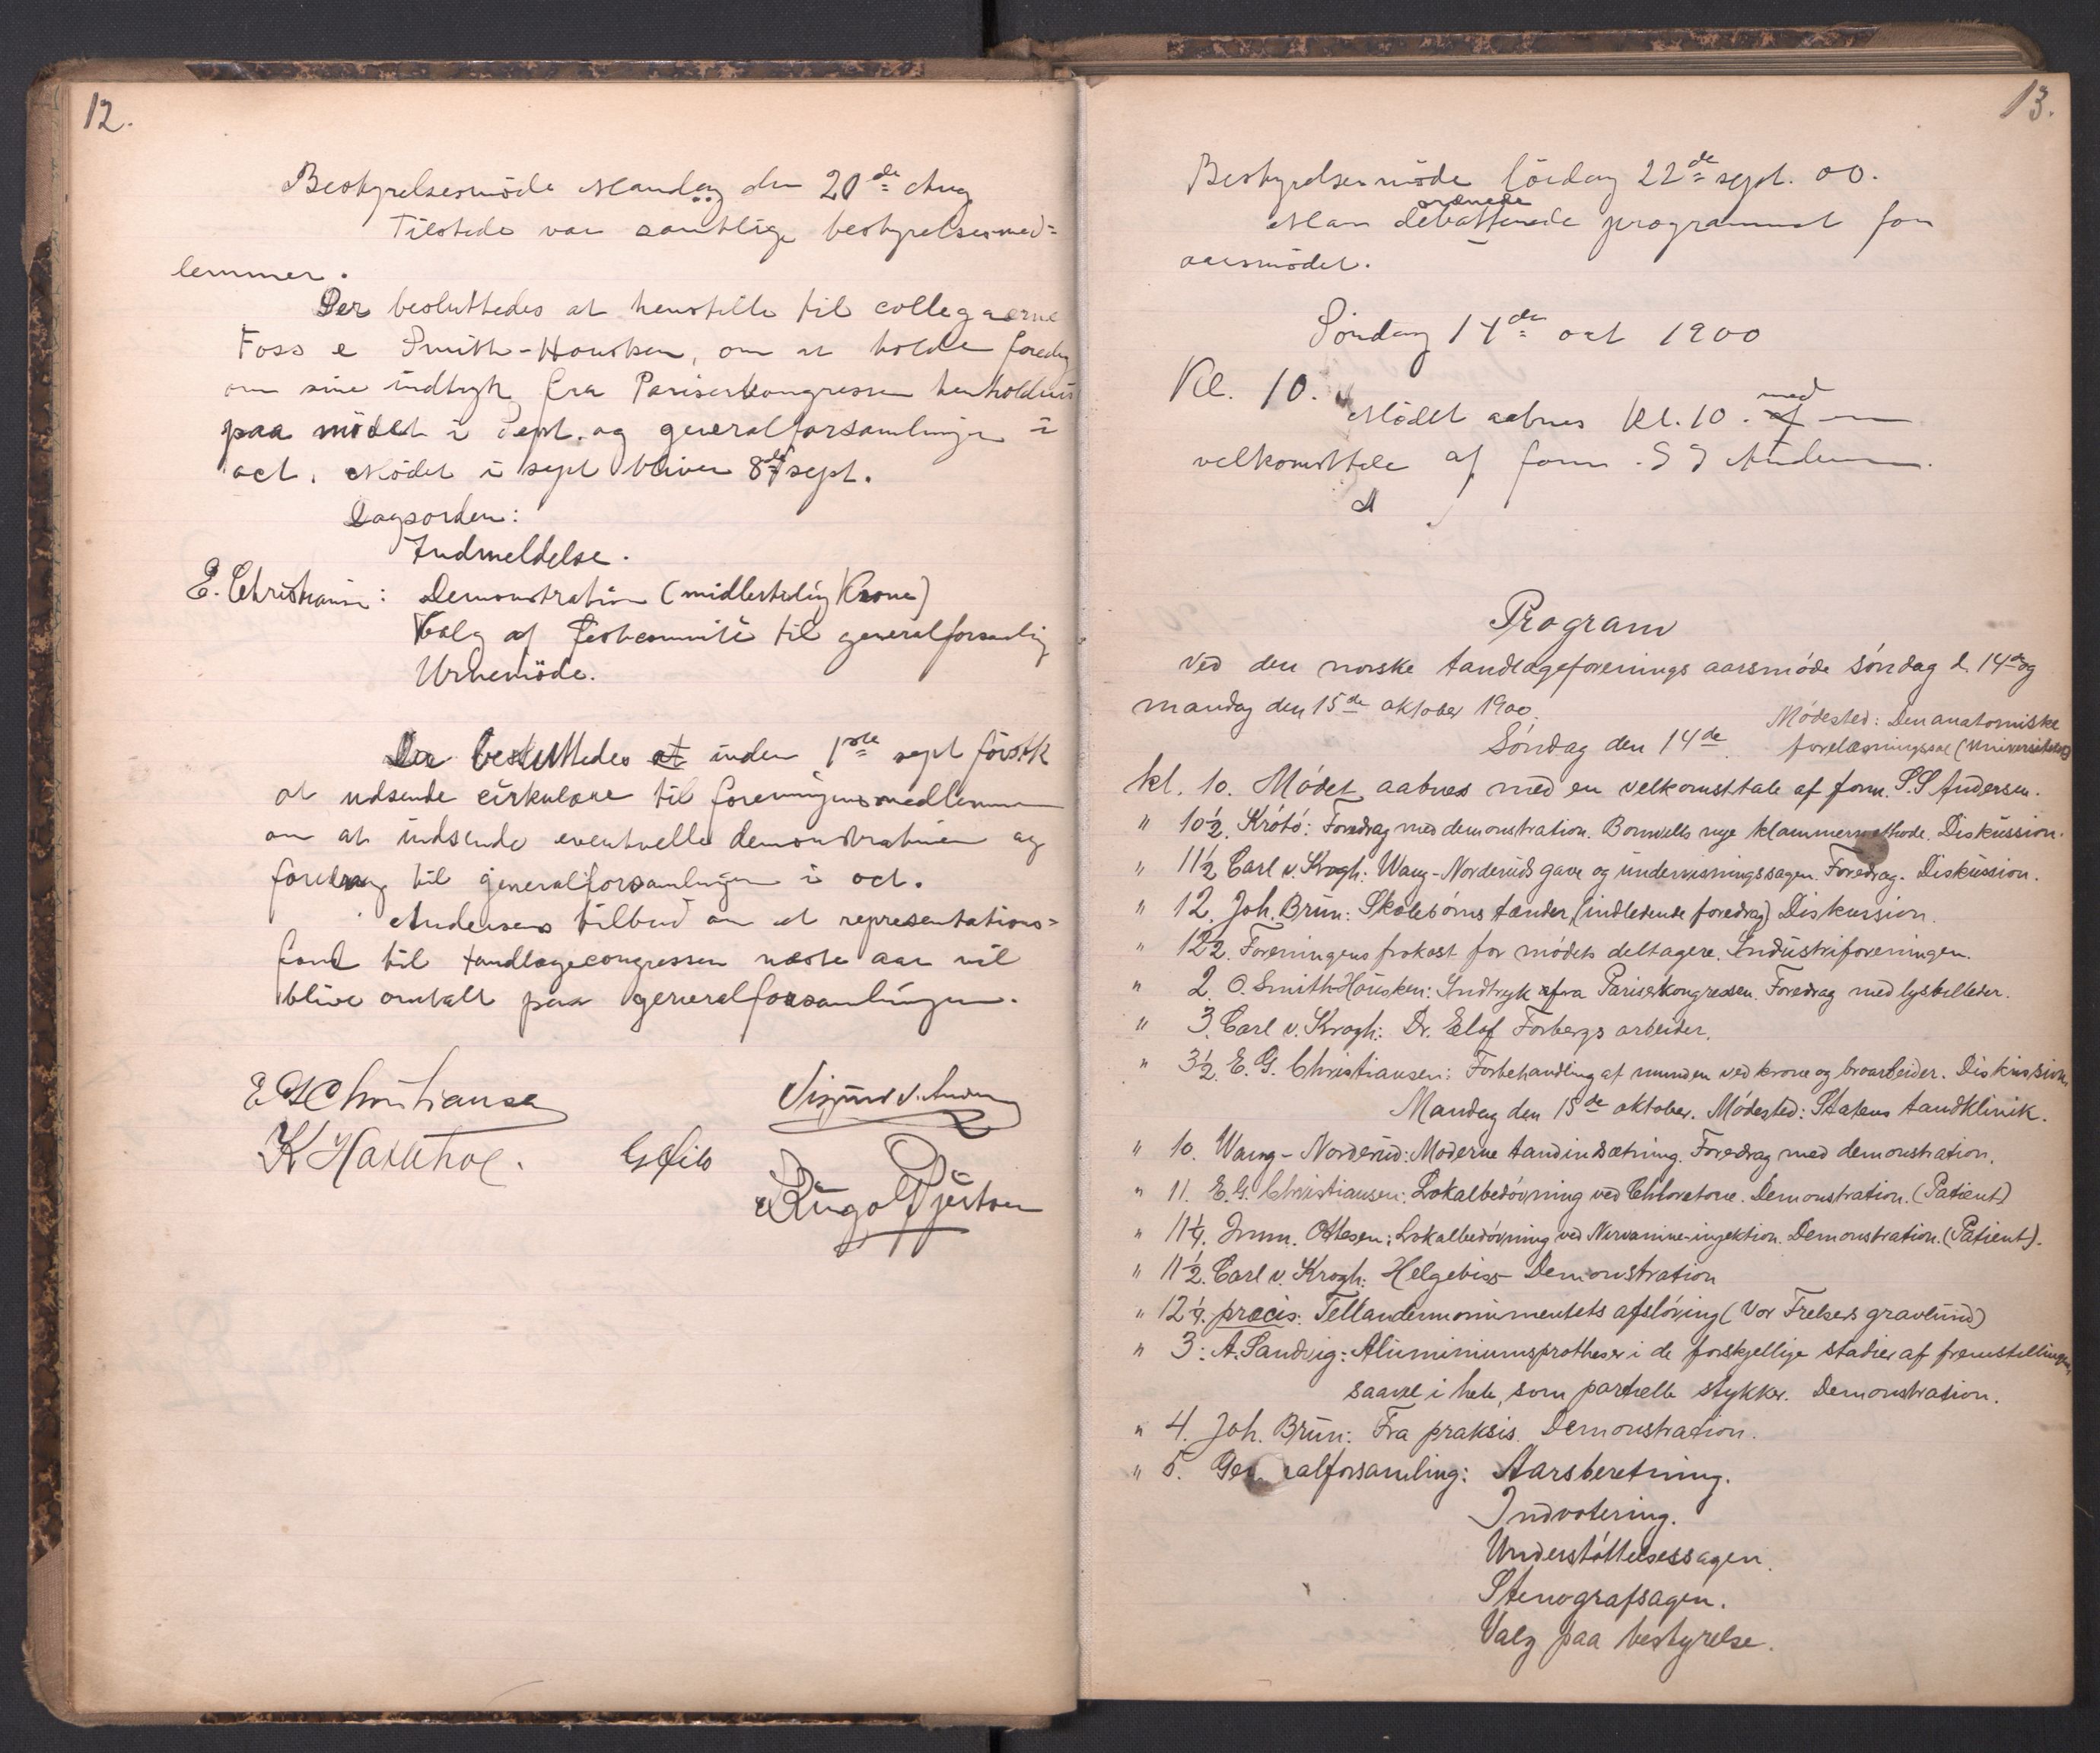 12.
Bestyrelsesmöde Mandag den 20de Aug
Tilstede var samtlige bestyrelsesmed=
lemmer.
Der besluttedes at henstille til collegaerne
Foss & Smith-Housken, om at holde foredrag
om sine indtryk fra Pariserkongressen henholdsvis
paa mödet i sept. og generalforsamlingen i
oct. Mödet i sept bliver 8de sept.
Dagsorden:
Indmeldelse.
E. Christiansen: Demonstration (midlertidig Krone)
Valg af festcomité til generalforsamling
Ordskifte
Der besluttedes at inden 1ste sept förstk
at udsende cirkulære til foreningens medlemmer
om at indsende eventuelle demonstrationer og
foredrag til generalforsamlingen i oct.
Andersens tilbud om et representations=
fond til tandlægecongressen næste aar vil
blive omtalt paa generalforsamlingen.
E G Christiansen
Sigurd S. Andersen
K Haxthow.
13.
Bestyrelsesmöde lördag 22de sept. 00.
ordnede
Man debatterede programmet for
aarsmödet.
Söndag 14de oct 1900
Kl. 10.
Mödet aabnes kl. 10. med af en
velkomsttale af form. S S Andersen.
Program
ved den norske tandlægeforenings aarsmöde söndag d. 14de og
mandag den 15de oktober 1900.
Mödested: Den anatomiske
Söndag den 14de. forelæsningssal (Universitetet)
kl. 10. Mödet aabnes med en velkomsttale af form. S.S Andersen.
" 10½. Krótó: Foredrag med demonstration. Bonwills nye klammermethode. Diskussion.
" 11½ Carl v. Krogh: Wang-Norderuds gave og undervisningssagen. Foredrag. Diskussion.
" 12. Joh. Brun: Skolebørns tænder (indledende foredrag) Diskussion.
" 12½. Foreningens frokost for mödets deltagere. Industriforeningen.
" 2. O. Smith-Housken: Indtryk fra Pariserkongressen. Foredrag med lysbilleder.
" 3. Carl v. Krogh: Dr. Elof Förbergs arbeider.
" 3½. E. G. Christiansen: Forbehandling af munden ved krone og broarbeider. Diskussion.
Mandag den 15de oktober. Mödested: Statens tandklinik.
" 10. Wang-Norderud: Moderne tandindsætning. Foredrag med demonstration.
" 11. E.G. Christiansen: Lokalbedövning ved Chloretone. Demonstration. (Patient)
" 11¼. Imm. Ottesen: Lokalbedövning ved Nirvanine-injektion. Demonstration. (Patient).
" 11½. Carl v. Krogh: Helgebiss Demonstration
" 12¼. præcis: Tellandermonumentets afslöring (Vor Frelsers gravlund)
" 3: A. Sandvig: Aluminiumsprotheser i de forskjellige stadier af fremstillingen,
saavel i hele, som partielle stykker. Demonstration.
" 4. Joh. Brun: Fra praksis. Demonstration.
" 5. Generalforsamling: Aarsberetning.
Indvotering.
Understöttelsessagen.
Stenografsagen.
Valg paa bestyrelse.